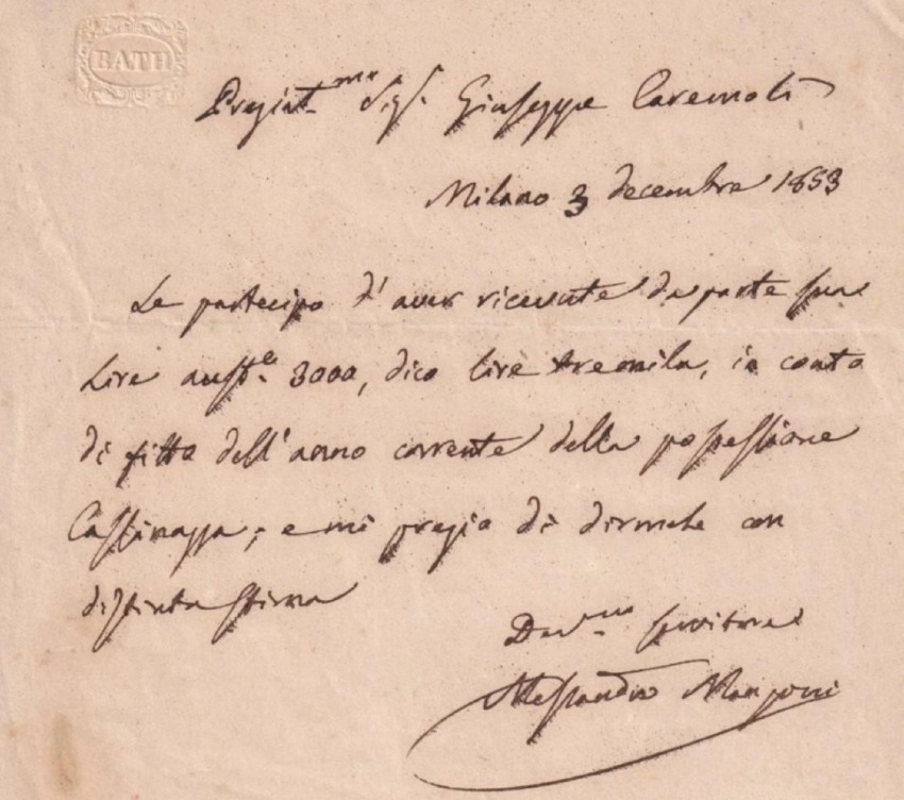 BATH
Pregiat.mo Sigr. Giuseppe Caremoli
Milano 3 decembre 1853
Le partecipo d'aver ricevute da parte sua
Lire auste. 3000, dico lire tremila, in conto
di fitto dell'anno corrente della possessione
e mi pregio di dirmele con
distinta stima
Dev.mo servitore
Alessandro Manzoni